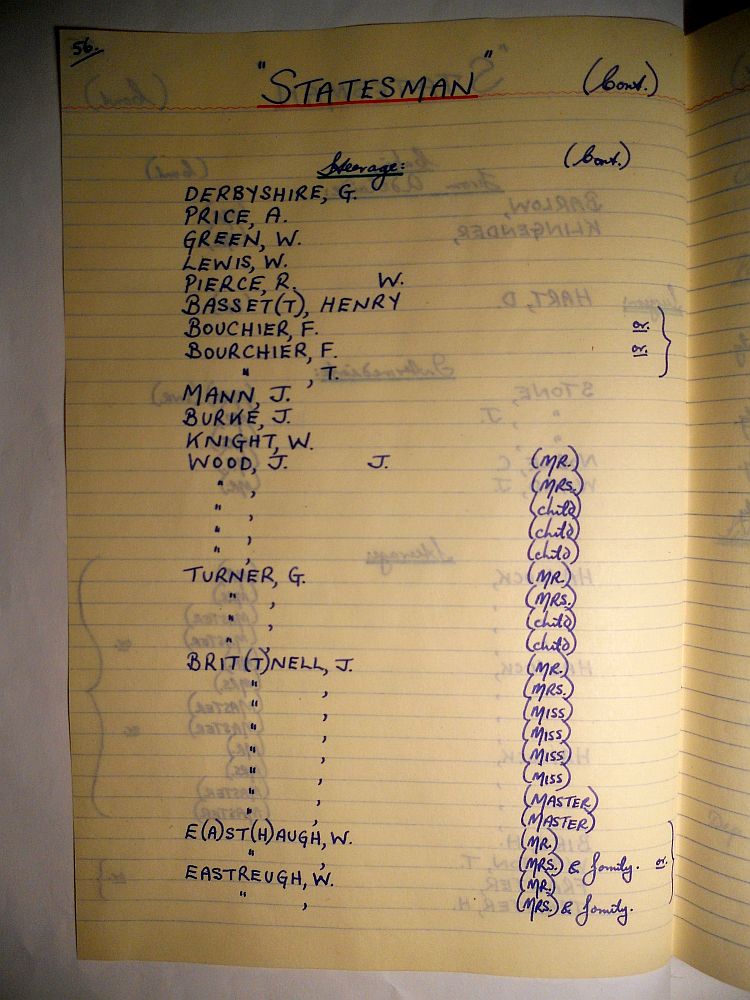 56.
"STATESMAN" (Cont.)
Steerage: (Cont.)
DERBYSHIRE, G.
PRICE, A.
GREEN, W.
LEWIS, W.
PIERCE, R. W.
BASSET(T), HENRY
BOUCHIER, F. or.
BOURCHIER, F. or.
" , T.
MANN, J.
BURKE, J.
KNIGHT, W.
WOOD, J. J. (MR.)
" , (MRS.)
" , (child)
" , (child)
" , (child)
TURNER, G. (MR.)
" , (MRS.)
" , (child)
" , (child)
BRIT(T)NELL, J. (MR.)
" , (MRS.)
" , (MISS)
" , (MISS)
" , (MISS)
" , (MISS)
" , (MASTER)
" , (MASTER)
E(A)ST(H)AUGH, W. (MR.)
" , (MRS.) & family. or.
EASTREUGH, W. (MR.)
" , (MRS.) & family.